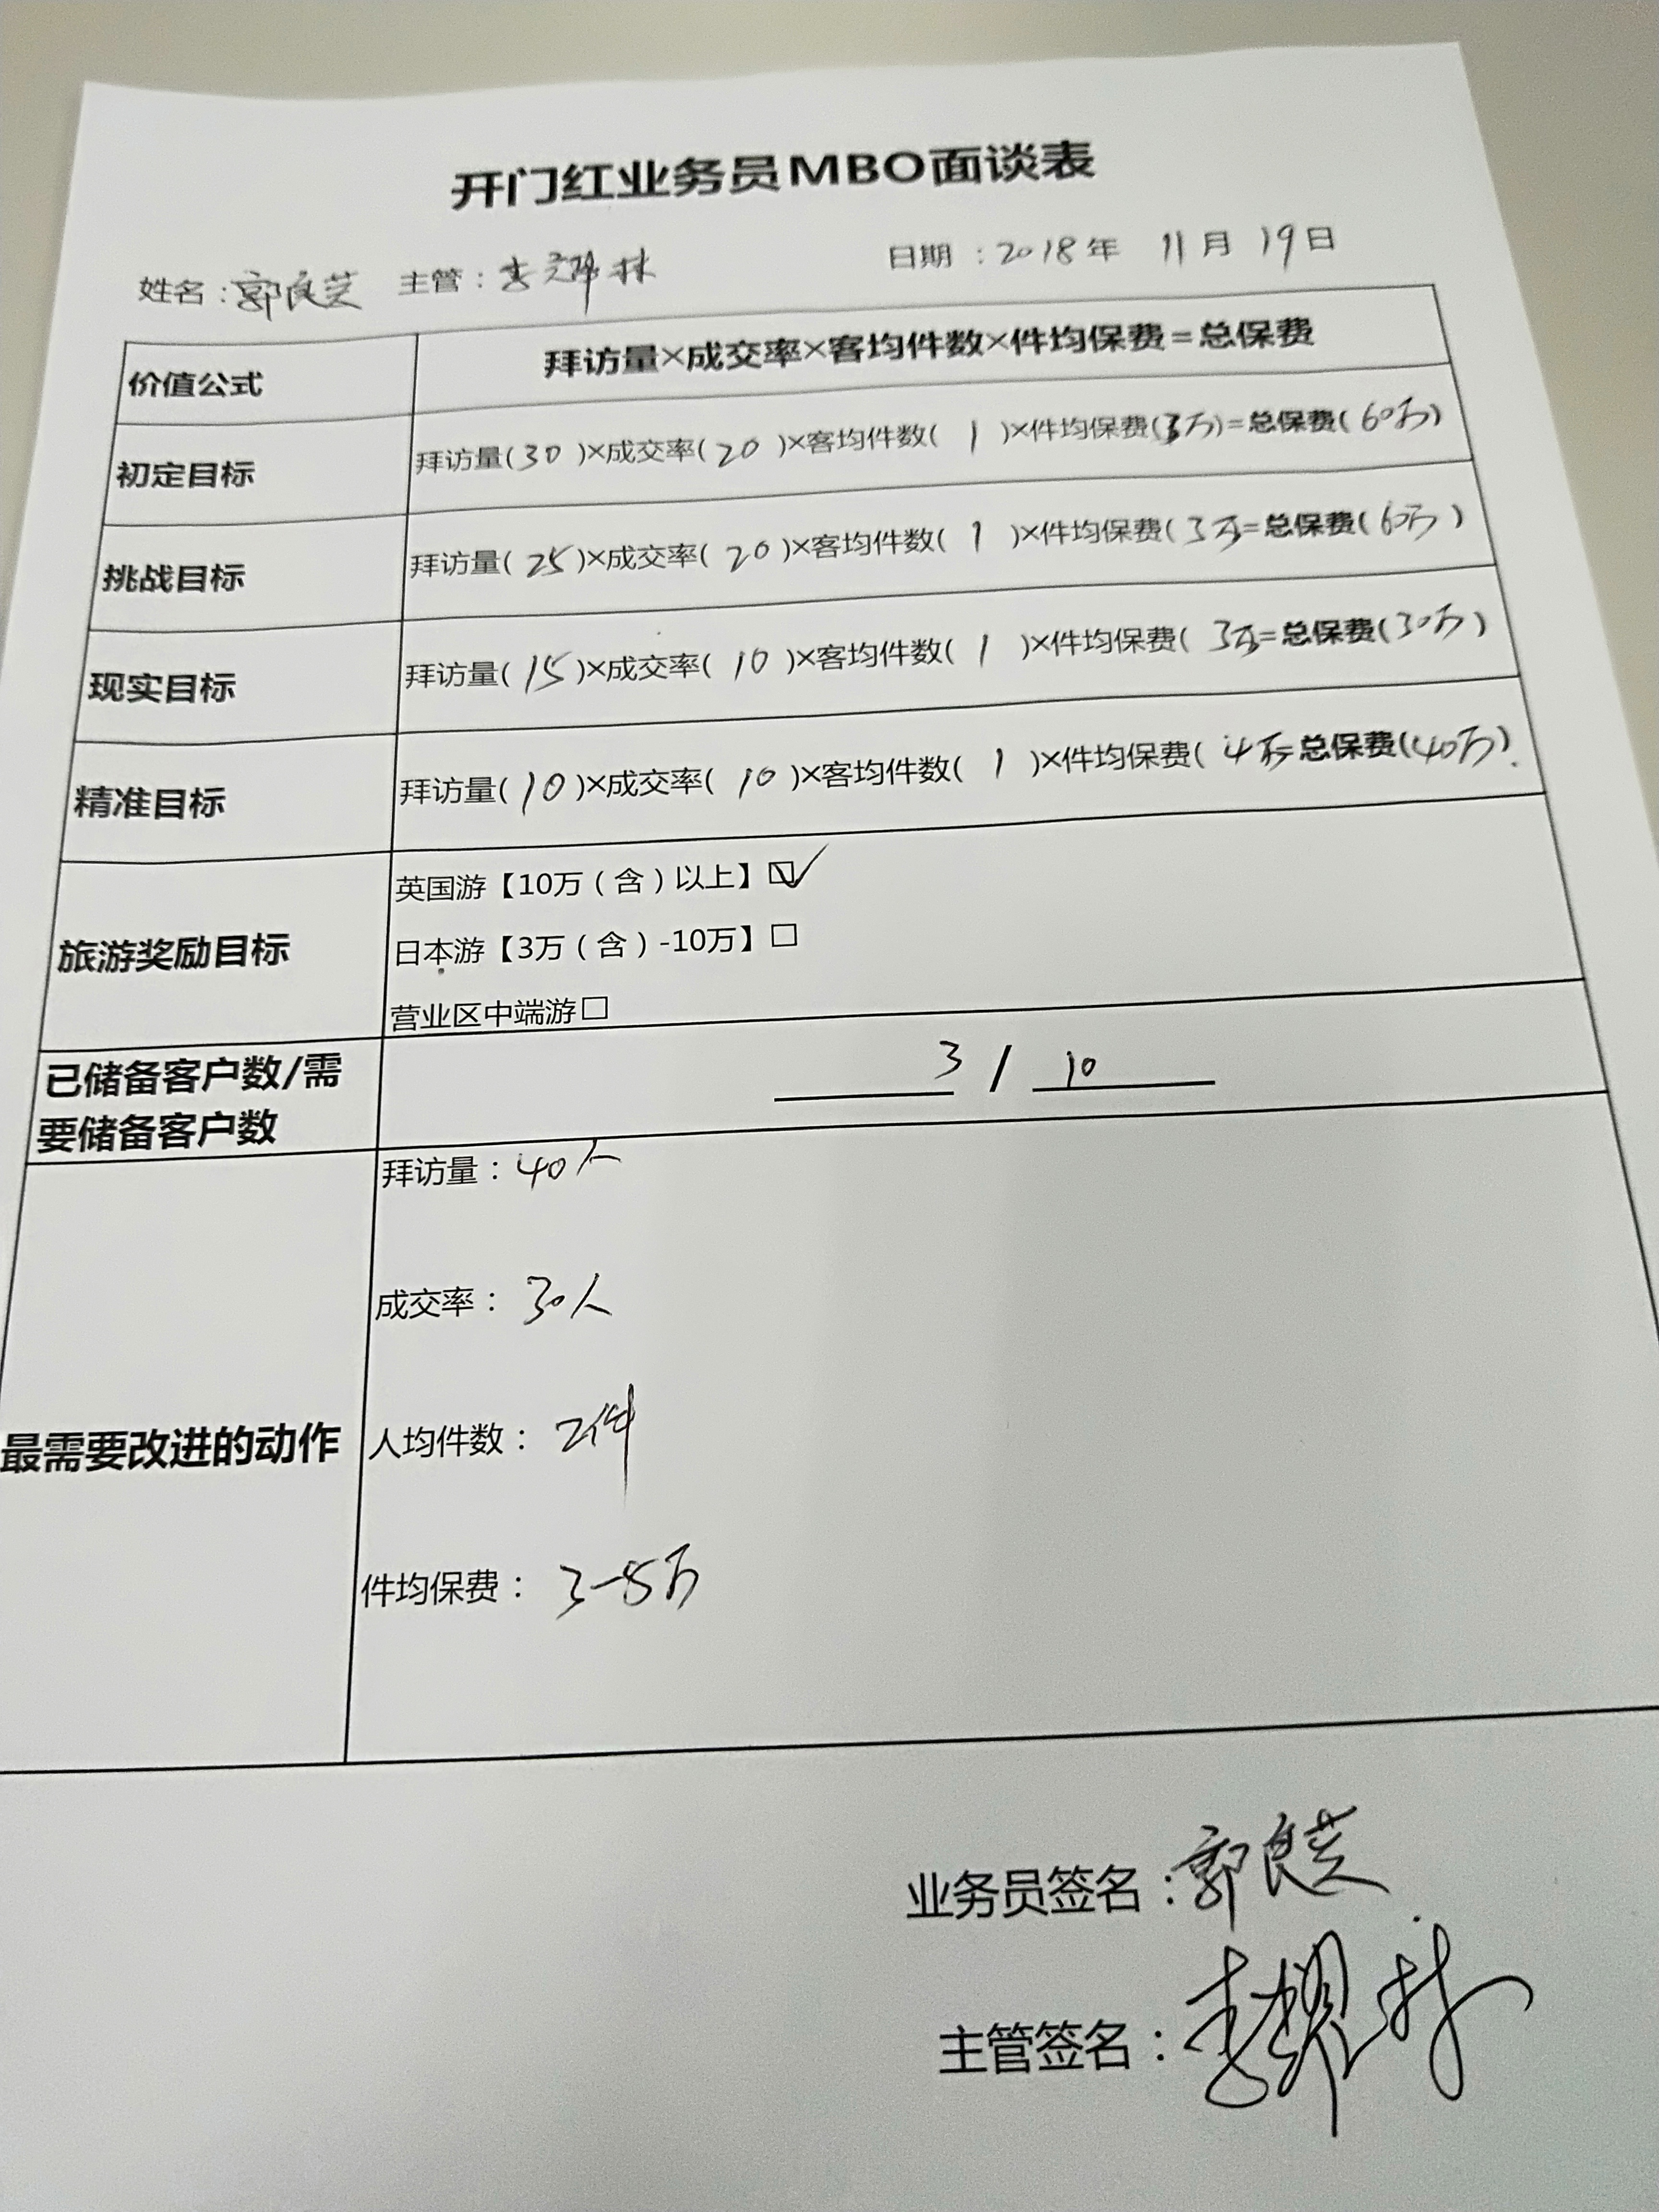 开门红业务员MBO面谈表
姓名：郭良芝 主管：李耀林 日期：2018年 11月19日
价值公式 拜访量×成交率×客均件数×件均保费=总保费
初定目标 拜访量(30)×成交率(20)×客均件数(1)×件均保费(3万)=总保费(60万)
挑战目标 拜访量(25)×成交率(20)×客均件数(1)×件均保费(3万=总保费(60万)
现实目标 拜访量(15)×成交率(10)×客均件数(1)×件均保费(3万=总保费(30万)
精准目标 拜访量(10)×成交率(10)×客均件数(1)×件均保费(4万=总保费(40万).
旅游奖励目标
英国游【10万（含）以上】☑
日本游【3万（含）-10万】□
营业区中端游□
已储备客户数/需
要储备客户数
3 / 10
最需要改进的动作
拜访量：40人
成交率：30人
人均件数：2件
件均保费：3-5万
业务员签名：郭良芝
主管签名：李耀林